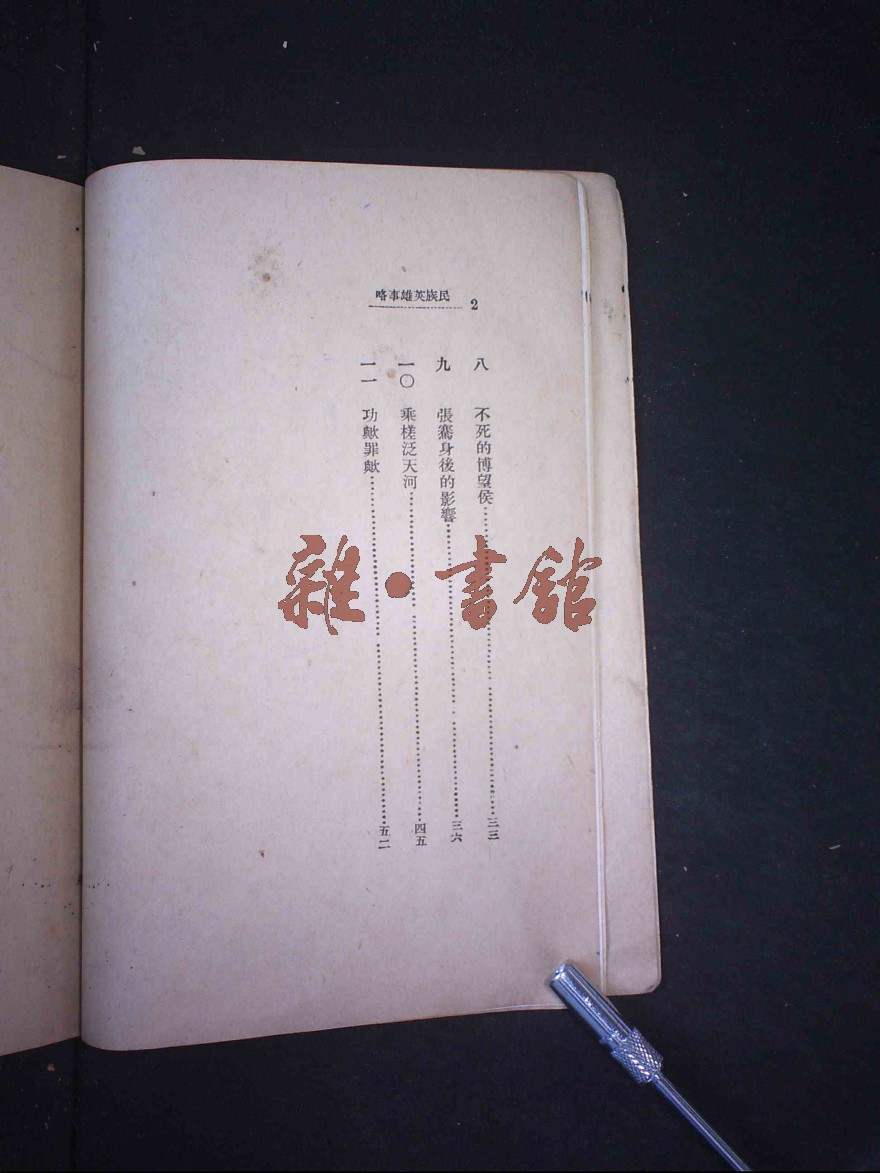 民族英雄事略
2
八 不死的博望侯 三三
九 張騫身後的影響 三六
一〇 乘槎泛天河 四五
一一 功歟罪歟 五二
雜·書館